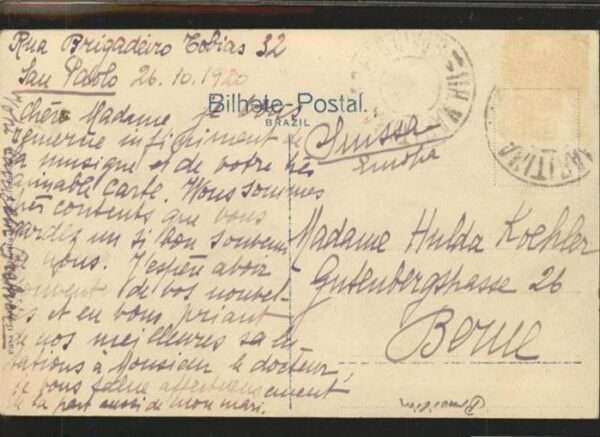 Rua Brigadeiro Tobias 32
San Paolo 26.10.1920
Bilhete-Postal.
BRAZIL
Chère Madame, je vous
remercie infiniment de
la musique et de votre très
aimable carte. Nous sommes
très contents que vous
gardez un si bon souvenir
de nous. J'espère avoir
souvent de vos nouvel-
les et en vous priant
de nos meilleures salu-
tations à Monsieur le docteur,
je vous
de la part aussi de mon mari.
Suissa
Europa
Madame Hulda Koehler
Gutenbergstrasse 26
Berne
Brasilien